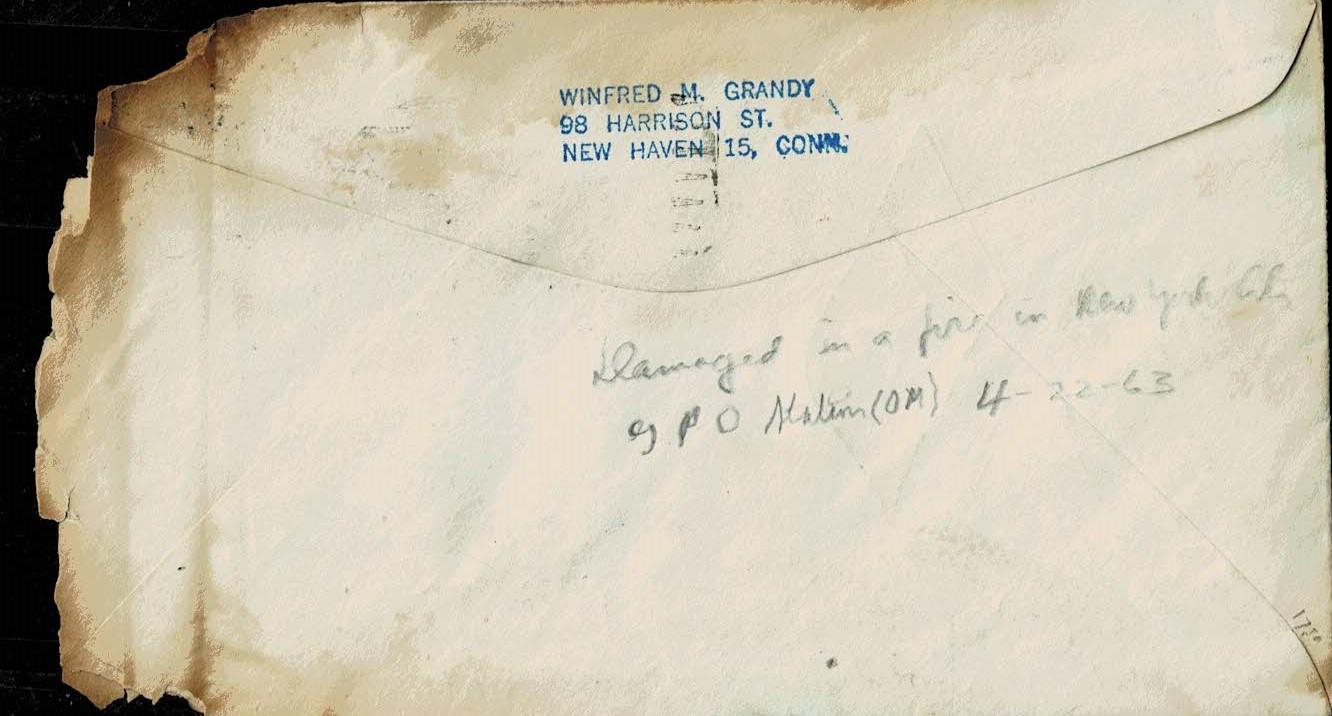 WINFRED M. GRANDY
98 HARRISON ST.
NEW HAVEN 15, CONN.
Damaged in a fire in New York City
P O Station (OM) 4-22-63